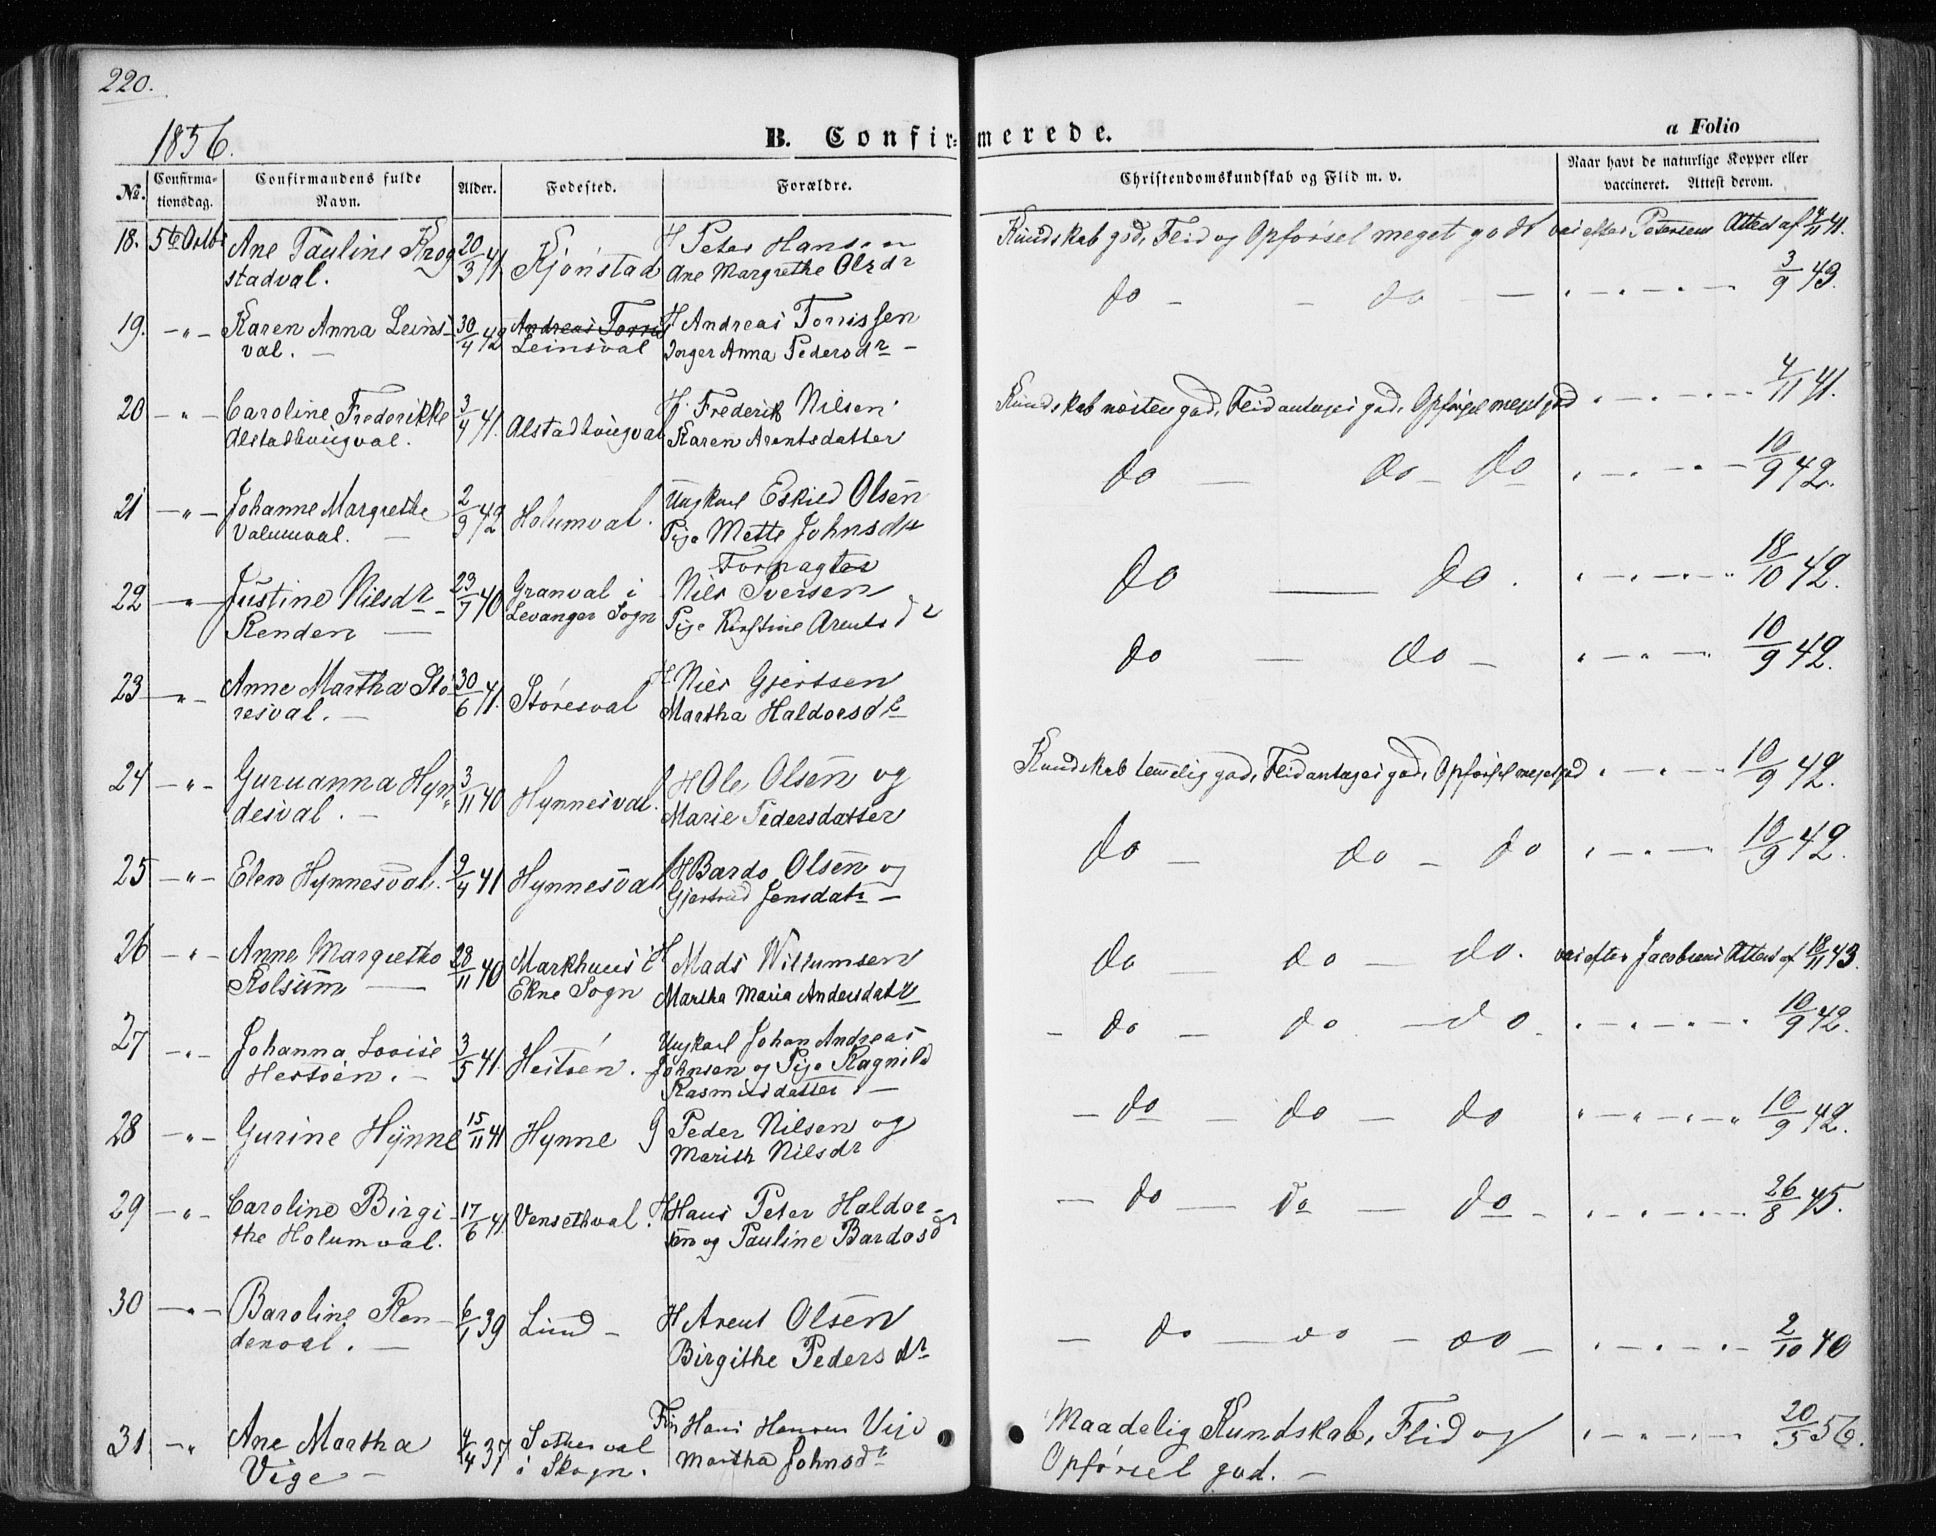 220.
1856.
B. Confir-
merede.
a Folio
No.
Confirma-
tionsdag.
Confirmandens fulde
Navn.
Alder.
Fodested.
Forældre.
Christendomskundskab og Flid m. v.
Naar havt de naturlige Kopper eller
vaccineret. Attest derom.
18. 5te Octb. Ane Pauline Krog- 20/3 41 Kjónstad H Peter Hansen Kundskab god, Flid og Opførsel meget godt vac efter Petersens Attest af 4/11 41.
stadval. Ane Margrethe Olsdr
19. -"- Karen Anna Leins- 30/4 42 Andreas Torris H Andreas Torrissen do - - do - 3/9 43.
val. - Leinsval Inger Anna Pedersdr -
20 -"- Caroline Frederikke 3/4 41. Alstadhougval H. Frederik Nilsen Kundskab næsten god, Flid antages god, Opførsel meget god 4/11 41.
Alstadhougval. Karen Arentsdatter
21 -"- Johanne Margrethe 2/9 42 Holumval. Ungkarl Eskild Olsen do - do - do 10/9 42.
Valumval. - Pige Mette Johnsdtr
Forpagter
22 -"- Justine Nilsdr - 23/7 40 Granval i Nils Iversen do - do. 18/10 42.
Renden - Levanger Sogn Pige Kirstine Arentsdr
23 -"- Anne Martha Stó- 30/6 41. Stóresval H Niels Gjertsen do - do - 10/9 42.
resval. - Martha Haldorsdtr
24 -"- Guruanna Hyn- 3/11 40 Hynnesval. H Ole Olsen og Kundskab temelig god, Flid antages god, Opførsel meget god 10/9 42.
desval. - Marie Pedersdatter
25 -"- Elen Hynnesval. 9/4 41 Hynnesval H Bardo Olsen og do - do - do 10/9 42.
Gjertrud Jensdatr -
26 -"- Anne Margretha 28/11 40 Markhuus i H Mads Willumsen do - do - do. vac efter Jacobsens Attest af 18/11 43.
Rolsum - Ekne Sogn Martha Maria Andersdatr
27 -"- Johanna Lovise 3/5 41. Hestóen. Ungkarl Johan Andreas - do - do - do - 10/9 42.
Hestóen. - Johnsen og Pige Ragnild
Rasmusdatter -
28 -"- Gurine Hÿnne 15/11 41 Hynne G Peder Nilsen og - do - do - do 10/9 42.
Marith Nilsdr
29 -"- Caroline Birgi- 17/6 41. Vensethval. H Hans Peter Haldor- - do - do - do - 26/8 45.
the Holumval. sen og Pauline Bardosdr
30 -"- Baroline Ren- 6/1 39 Lund - H Arent Olsen - do - do - do - 2/10 40
denval. - Birgithe Pedersdr
31 -" Ane Martha 4/4 37 i Skogn. Hans Hansen Vige Maadelig Kundskab, Flid og 20/5 56.
Vige - Martha Johnsdtr Opførsel god. -